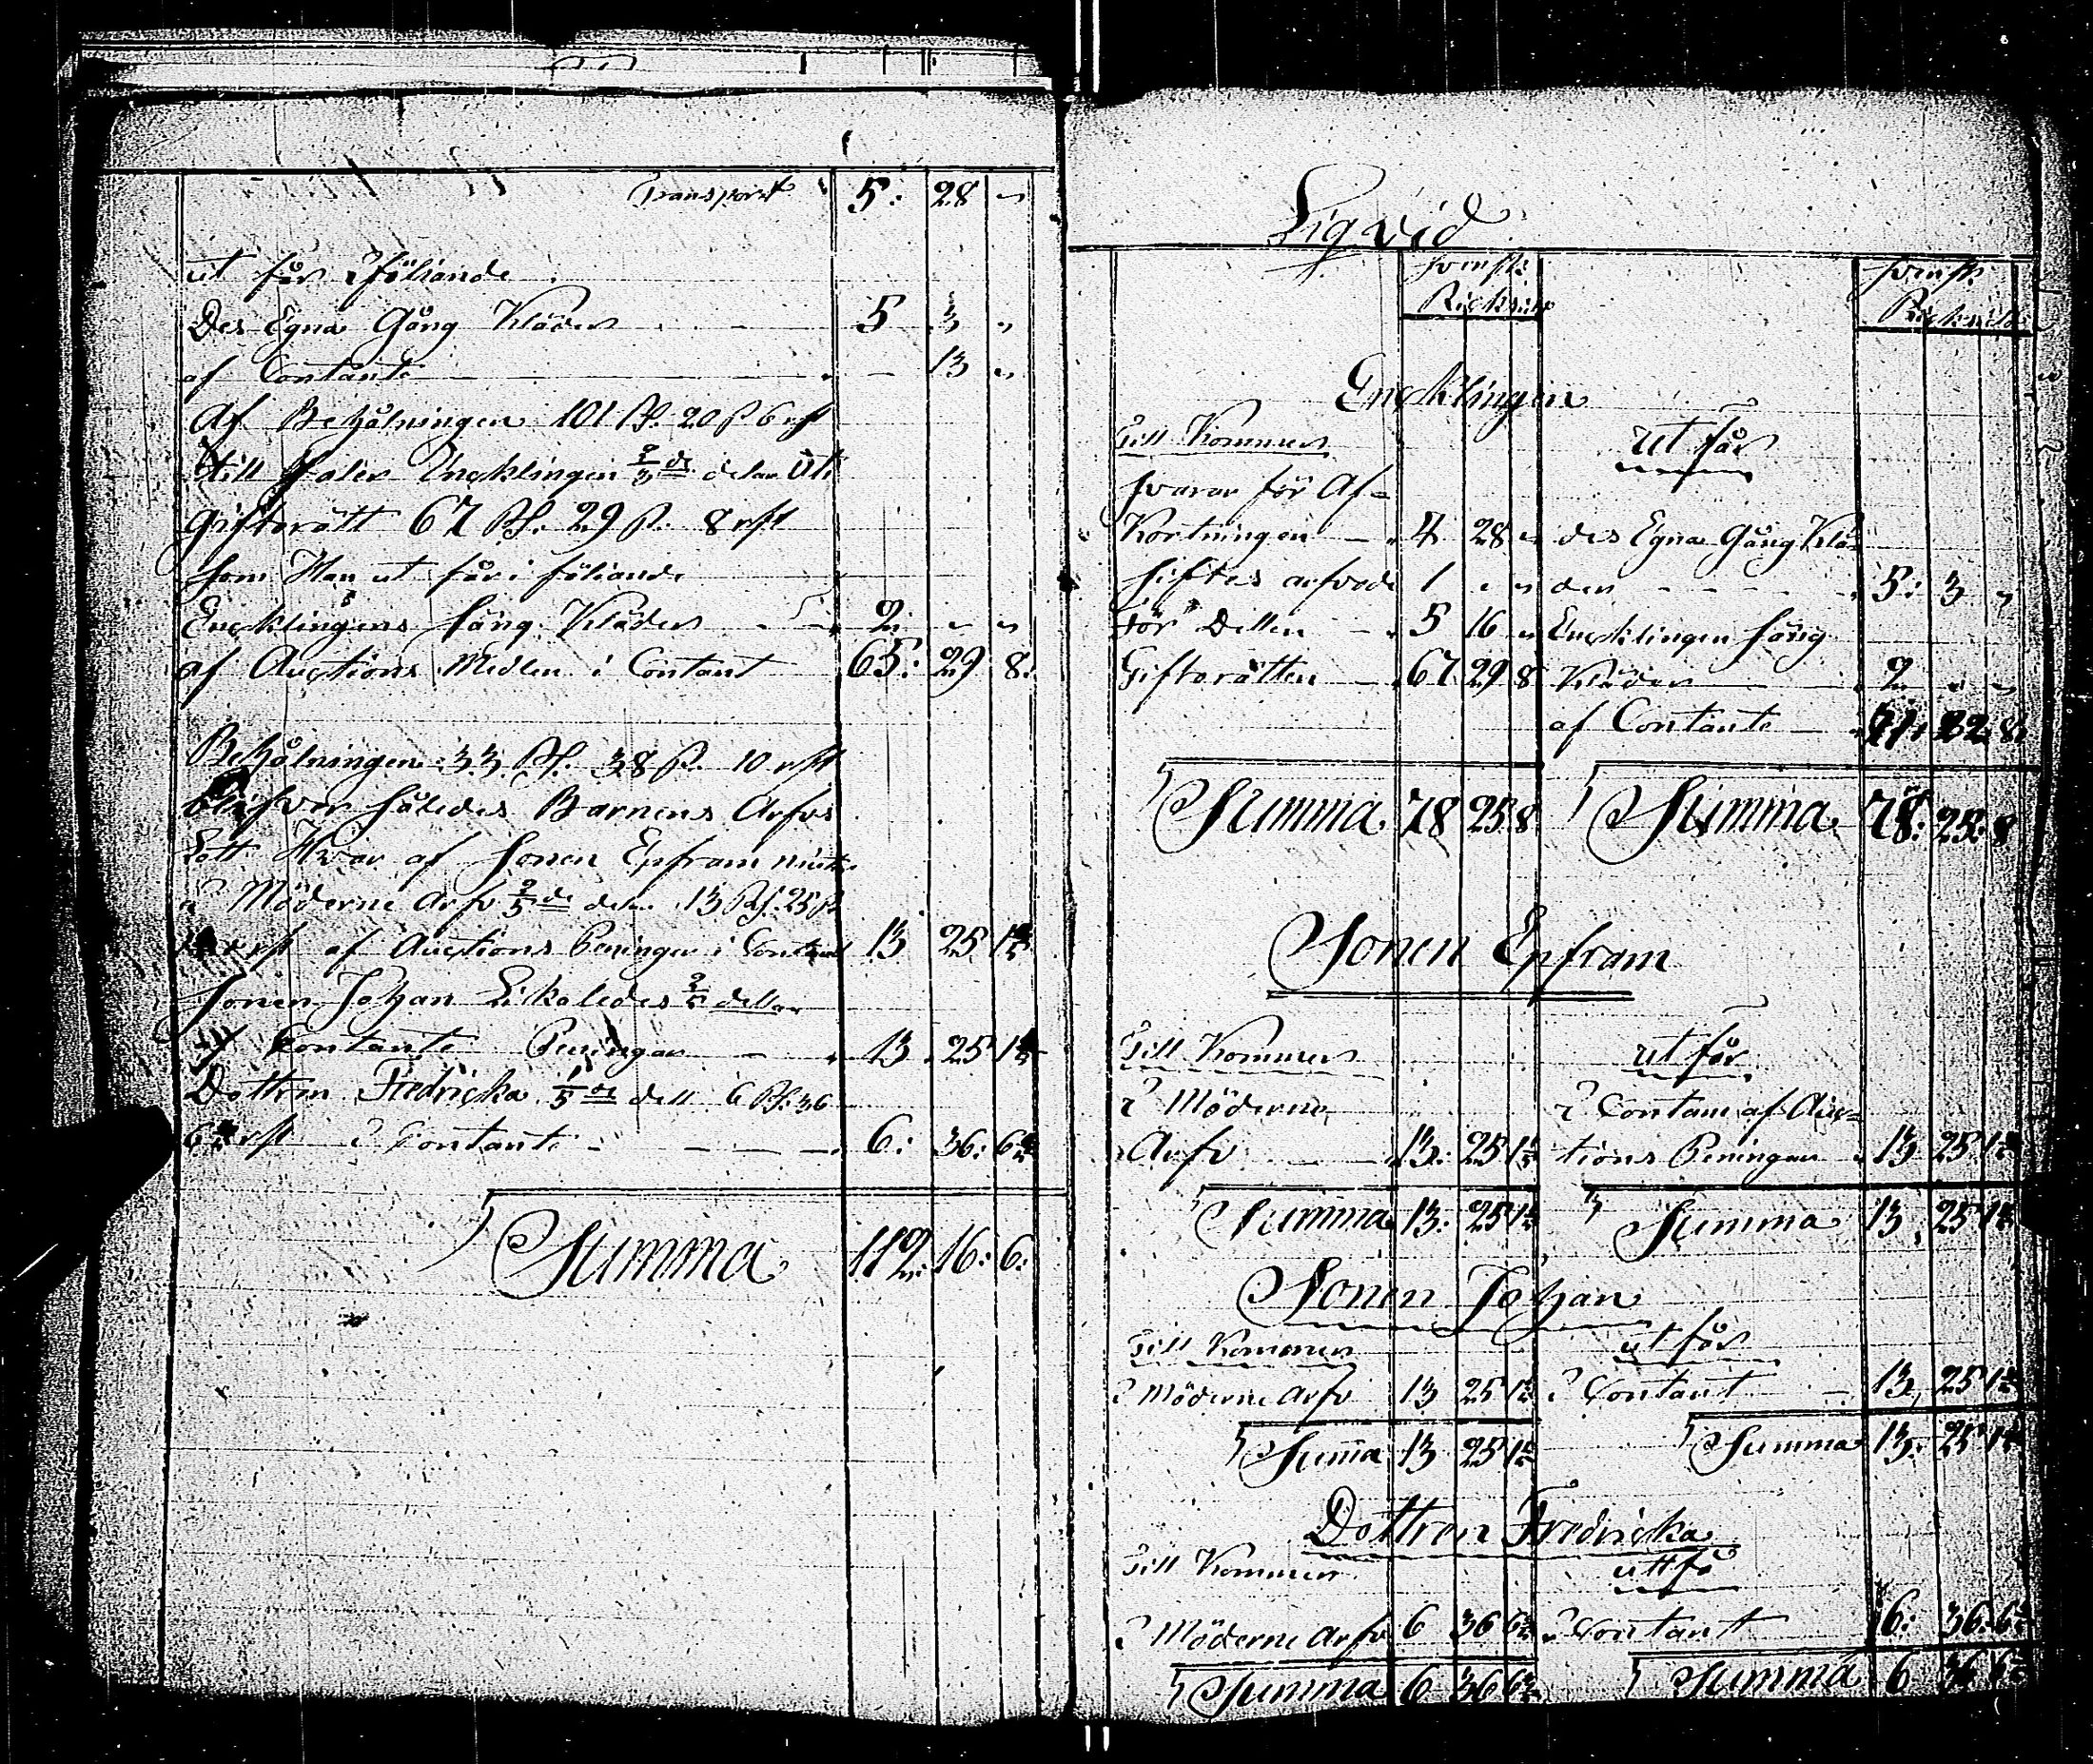 Transport 5: 28 "
ut får Följande
Des Egna Gång Kläder 5 3 "
af Contante 13 "
Af Behålningen 101 R. 20 s 6 rst
till faler Encklingen 2/3 de delar Uti
Giftorätt 67 Rd. 29 s. 8 rst
som Han ut får i följande
Encklingens säng Kläder 2 " "
af Auctions Medlen i Contant 65: 29 8:
Behålningen 33 Rd. 38 s. 10 rst
blifver således Barnens Arfvs
Lott Hvar af sonen Epfram
i Möderne Arfv 2/5 de delar 13 Rd. 25 s
rst af Auctions Peningar i Contant 13 25 1 3/5
Sonen Johan Likaledes 2/5 dellar
af Contante Peningar 13 25 1 3/5
Dottren Fredricka 1/5 de dell 6 Rd. 36
rst i Contante 6: 36: 6
Summa 112: 16: 6:
Liqvid
Svenskt Svenskt
Ricksd Ricksd
Encklingen
Till Kommer ut får
svarar för Af=
Kortningen 4 28 " des Egna Gång Klä=
Siftes arfvode 1 " " der 5: 3 "
för Dellen 5 16 " Encklingen säng
Giftorätten 67 29 8 Kläder 2 " "
af Contante 71: 22 8
Summa 78 25 8 Summa 78: 25: 8
Sonen Epfram
Till Kommer ut får
i Möderne i Contant af Auc=
Arfv 13: 25 1 3/5 tions Peningar 13 25 1 3/5
Summa 13: 25 1 3/5 Summa 13 25 1 3/5
Sonen Johan
Till Kommer ut får
i Möderne Arfv 13 25 1 3/5 i Contant 13 25 1 3/5
Summa 13 25 1 3/5 Summa 13: 25 1 3/5
Dottren Fredricka
Till Kommer utt få
i Möderne Arfv 6 36 6 i Contant 6: 36: 6
Summa 6 36 6 Summa 6 36 6